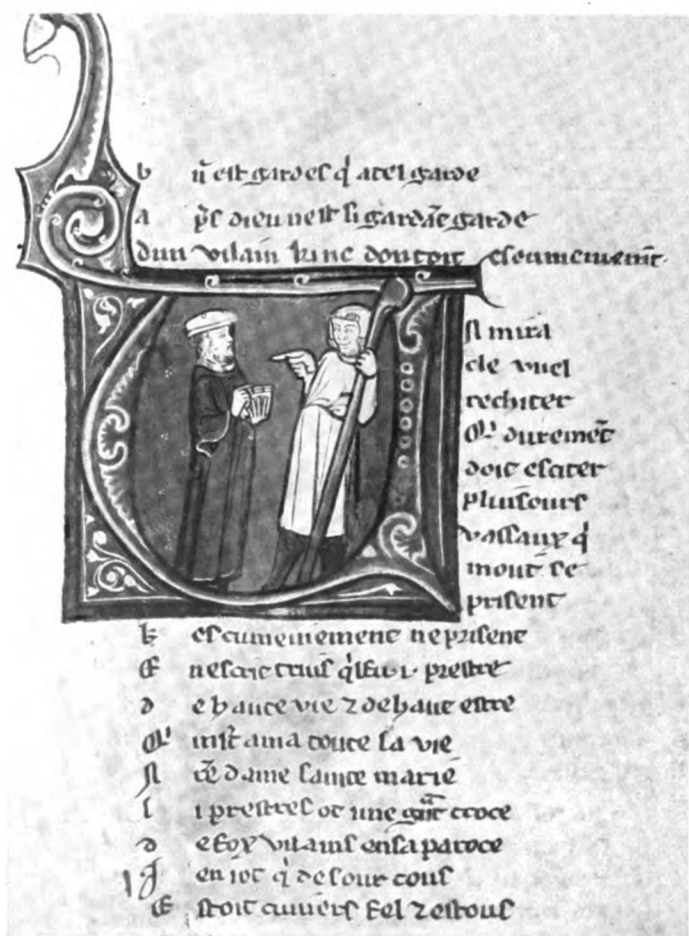 b ı̃ est gardes q̇ a tel garde
a p̃s dieu nest si gardãt garde
dun vilain ki ne doutoit escumeniem̃t
mira
cle vuel
rechiter
Q' duremẽt
doit esciter
pluisours
vassaux q̇
mout se
prisent
k escumeniement ne prisent
E ne sai el q̇l fu .i. prestre
d e haute vie ⁊ de haut estre
Q' ml̃t ama toute sa vie
N r̃e dame sainte marie
l i prestres ot une grãt croce
d e fox vilains en sa paroce
J en i ot q̇ desour tous
E stoit cuiviers fel ⁊ estous